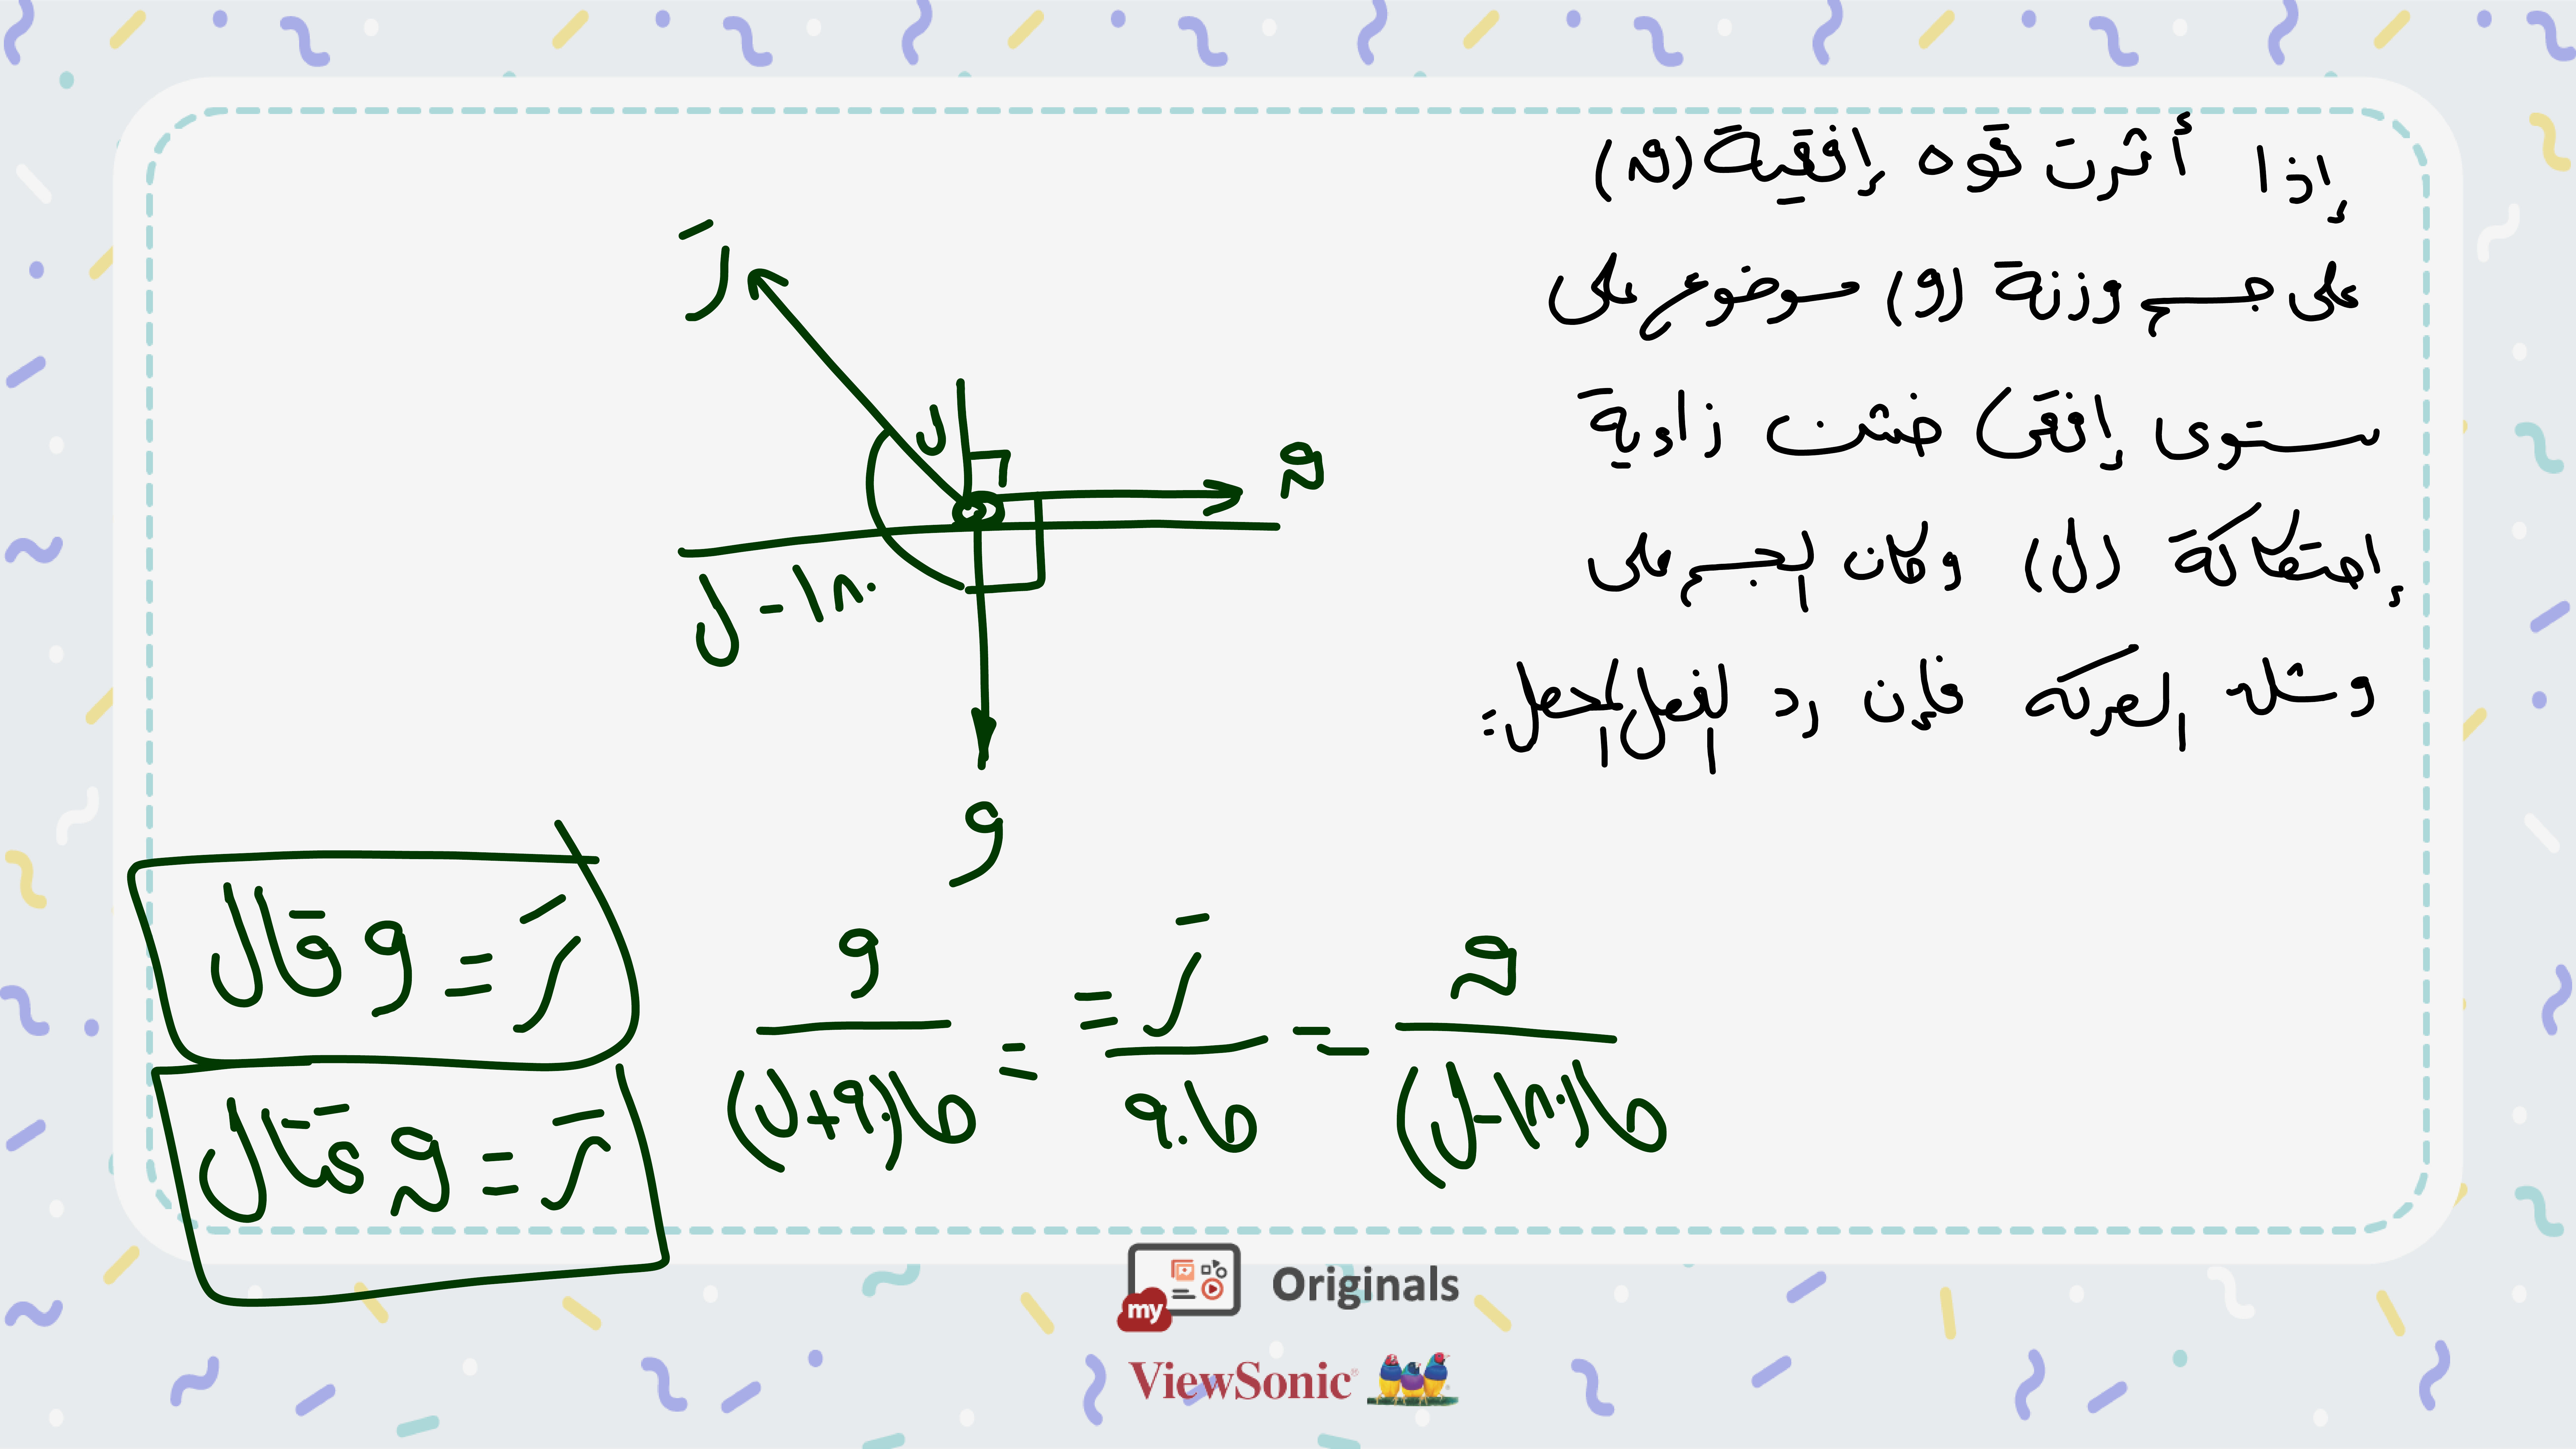 إذا أثرت قوه إفقية (ق)
على جسم وزنة (و) موضوع على
ستوى إفقى خشن زاوية
إحتكاكة (ل) وكان الجسم على
وشك الحركه فإن رد الفعل المحصل =
رَ
ل
ق
ل - ١٨٠
و
رَ = و قَال
رَ = ق قتَال
ق / جا(١٨٠-ل) = رَ / جا٩٠ = = و / جا(٩٠+ل)
my Originals
ViewSonic